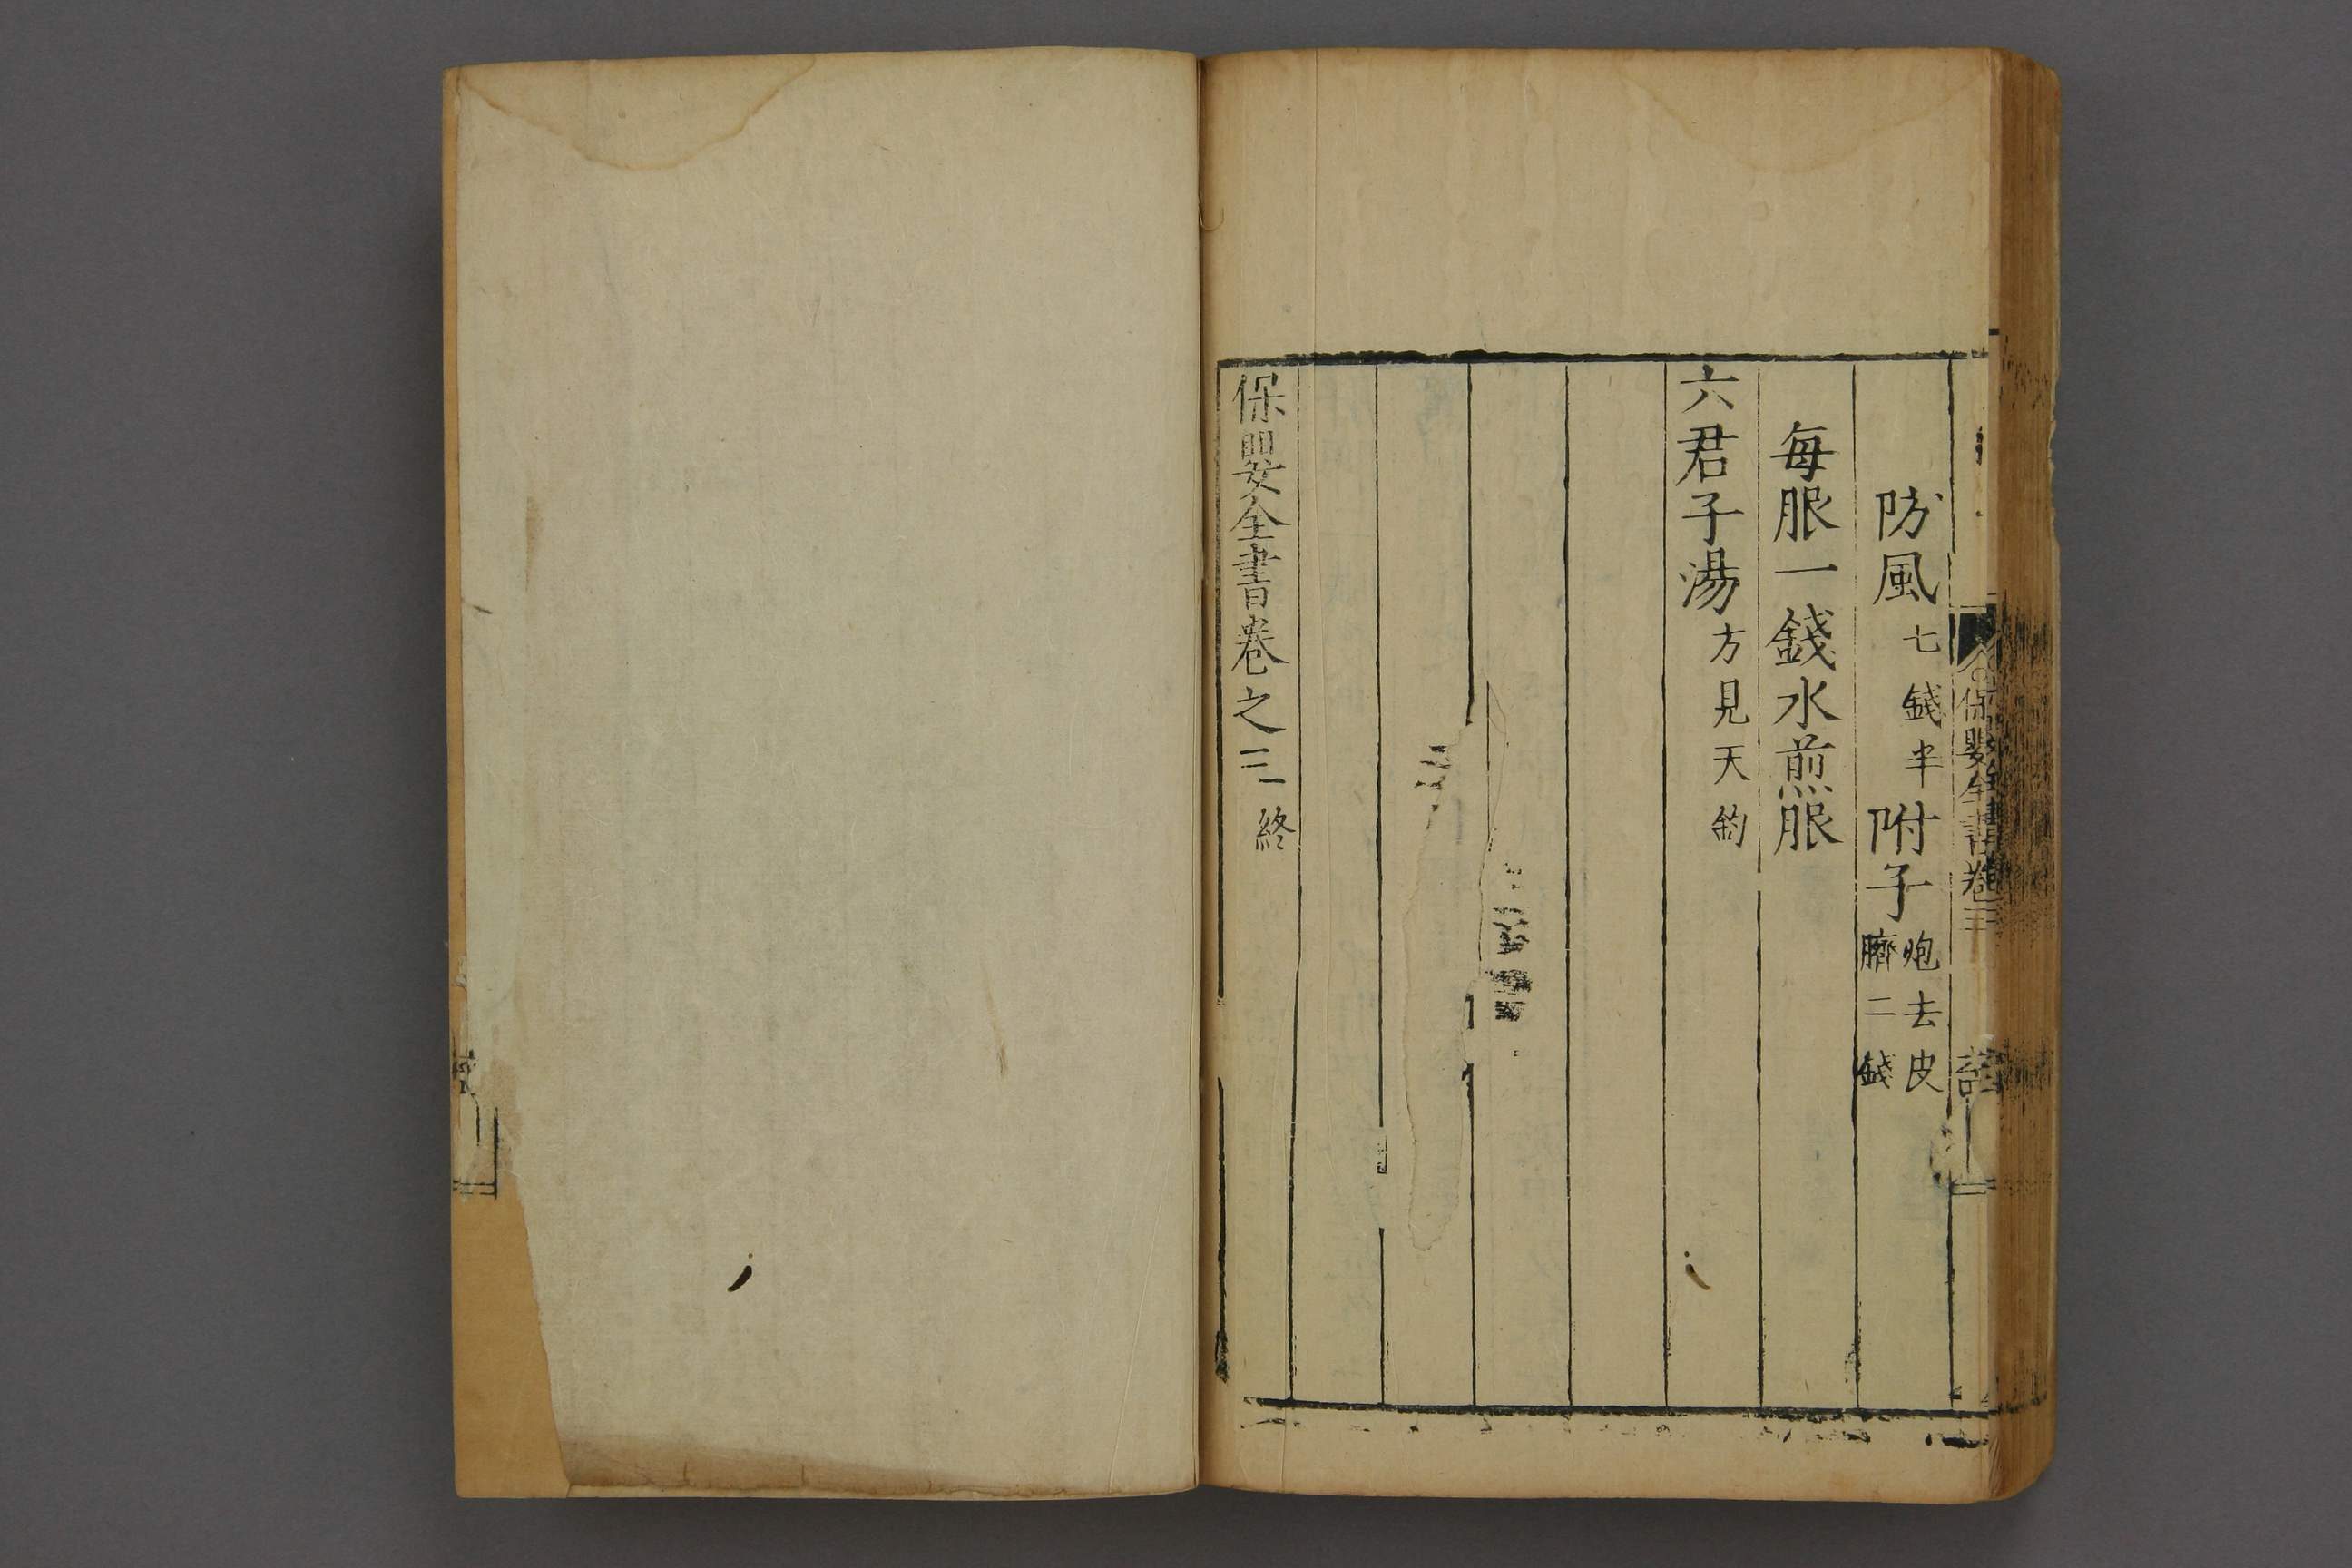 保嬰全書卷三
防風七錢半附子炮去皮臍二錢
每服一錢水煎服
六君子湯方見天釣
保嬰全書卷之三終